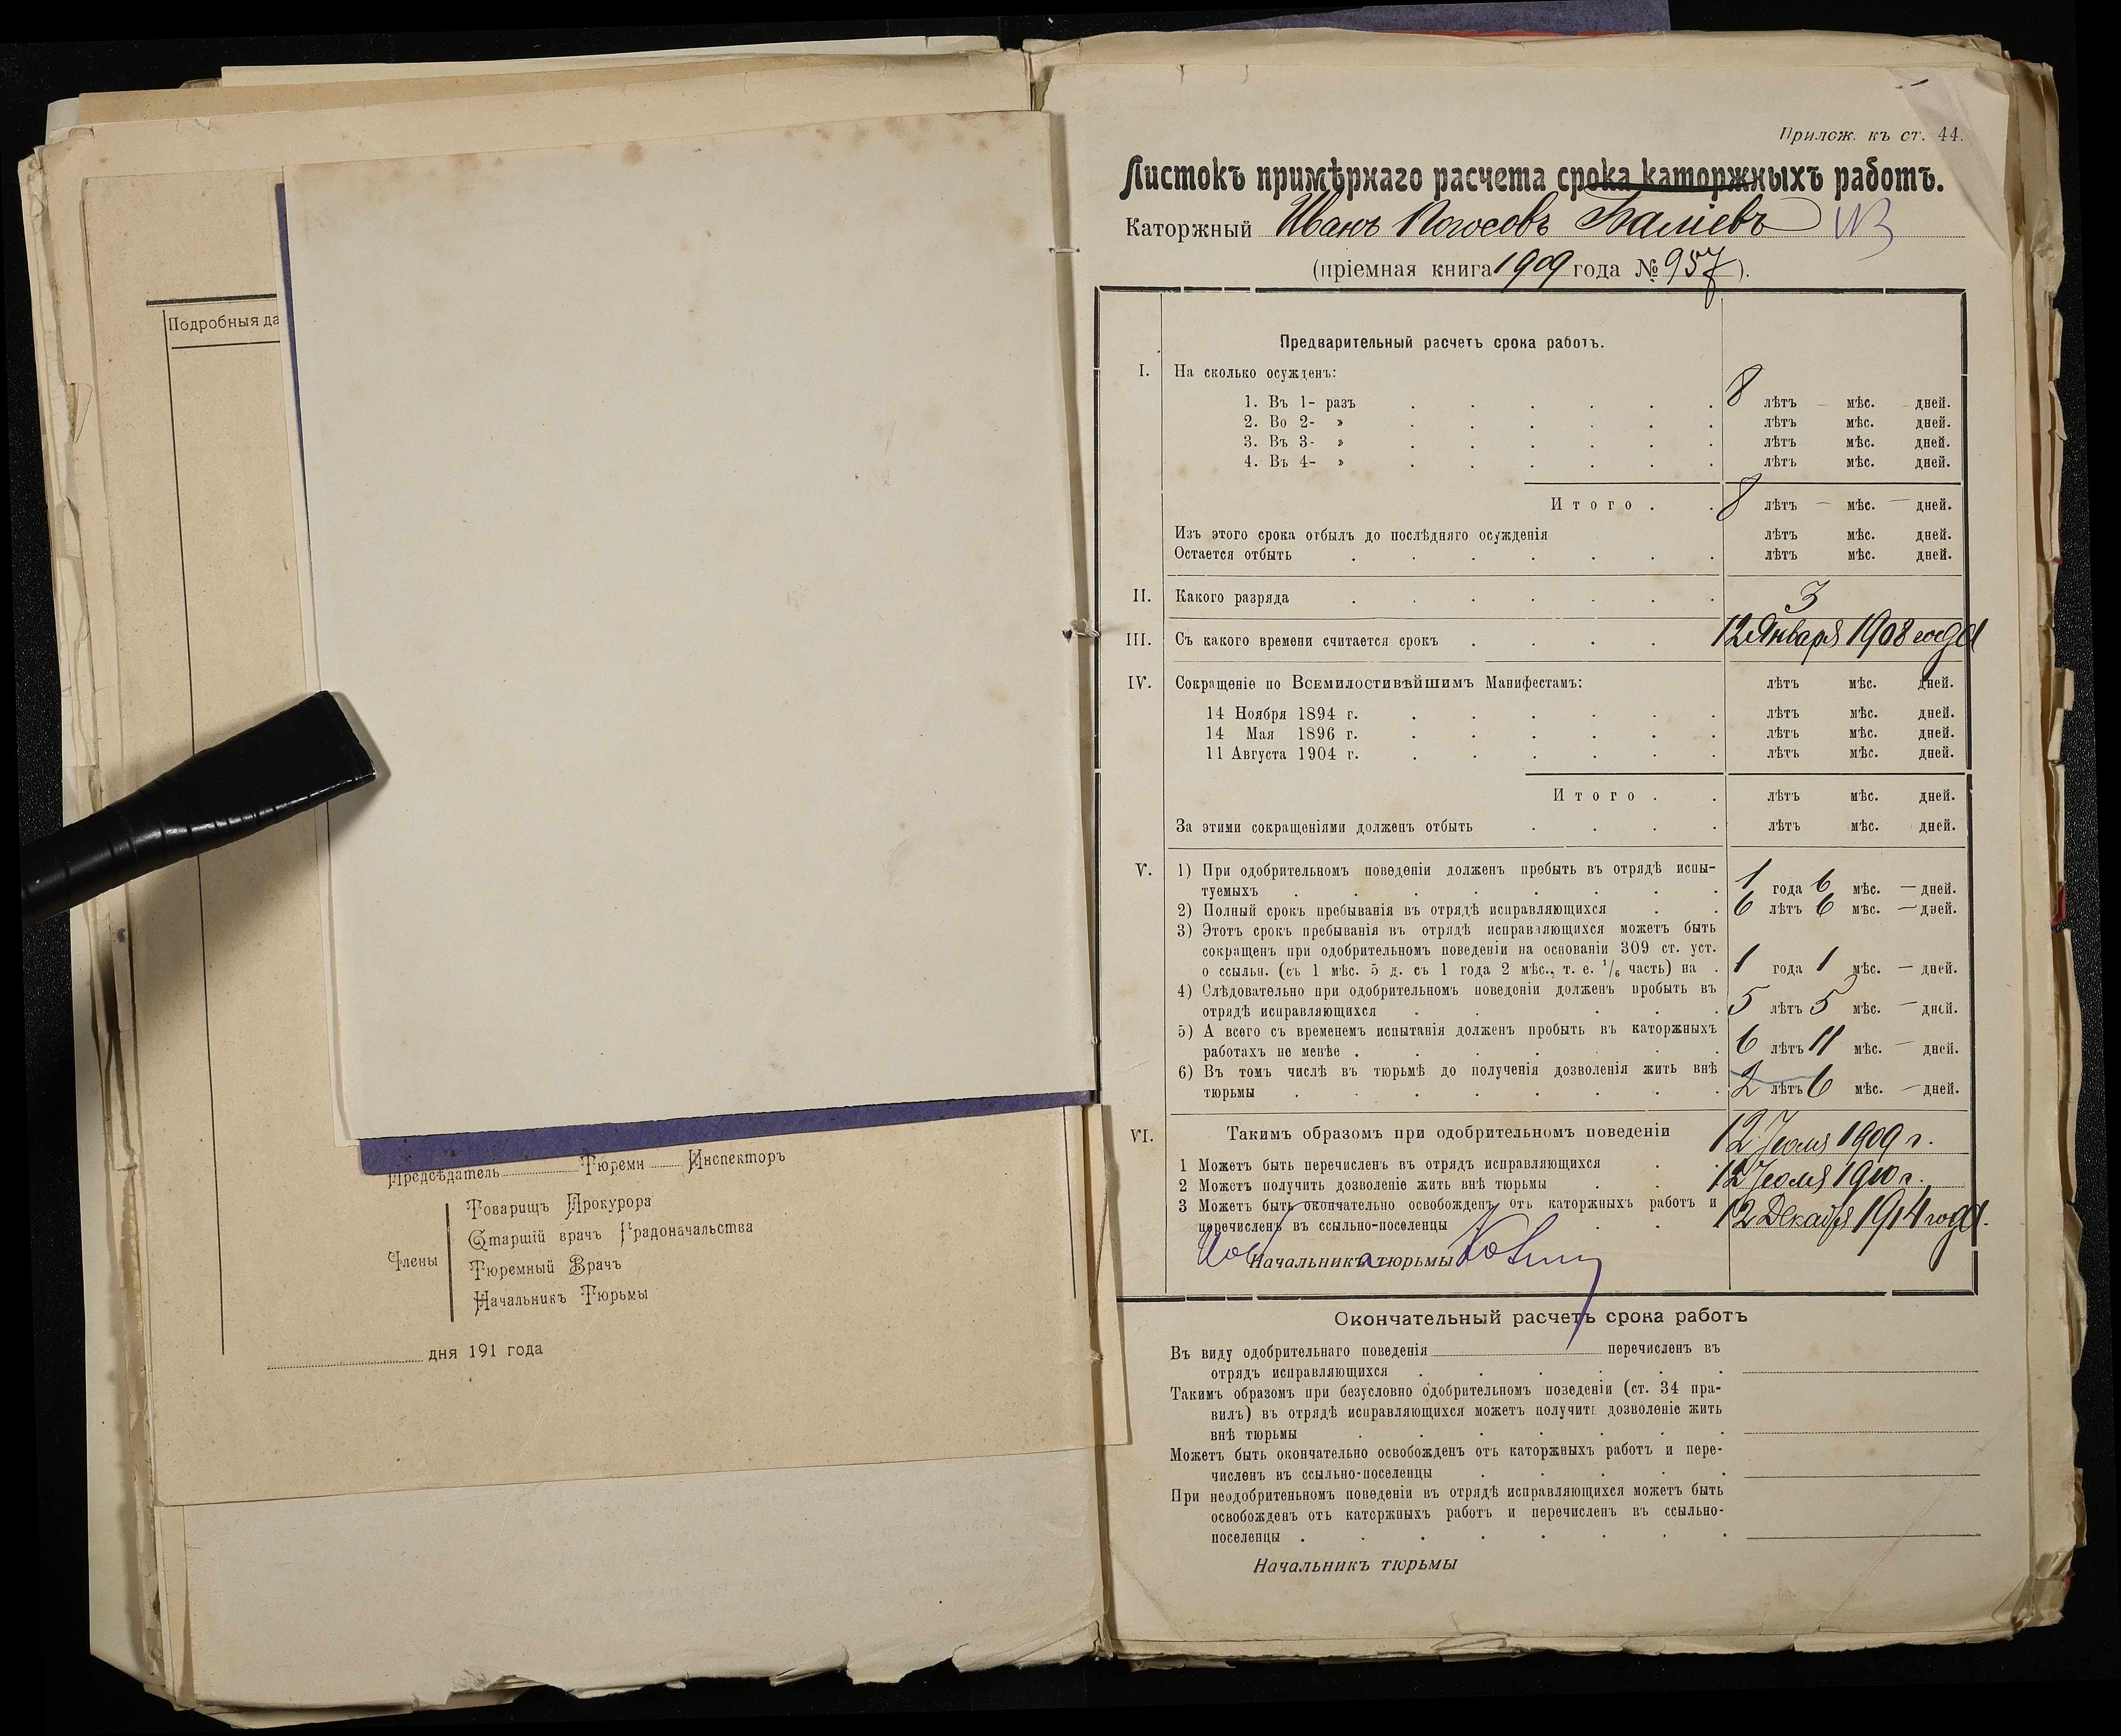 Подробныя да
Предсѣдатель Тюремн Инспекторъ
Члены
Товарищъ Прокурора
Старшій врачъ Градоначальства
Тюремный Врачъ
Начальникъ Тюрьмы
дня 191 года
Прилож. къ ст. 44.
Листокъ примѣрнаго расчета срока каторжныхъ работъ.
Каторжный Иванъ Погосовъ Баліевъ
(пріемная книга 1909 года № 957).
Предварительный расчетъ срока работъ.
I. На сколько осужденъ:
1. Въ 1- разъ . . . . . . 8 лѣтъ — мѣс. — дней.
2. Во 2- » . . . . . . лѣтъ мѣс. дней.
3. Въ 3- » . . . . . . лѣтъ мѣс. дней.
4. Въ 4- » . . . . . . лѣтъ мѣс. дней.
Итого . . 8 лѣтъ — мѣс. — дней.
Изъ этого срока отбылъ до послѣдняго осужденія лѣтъ мѣс. дней.
Остается отбыть . . . . . . . лѣтъ мѣс. дней.
II. Какого разряда . . . . . . . 3
III. Съ какого времени считается срокъ . . . . 12 Января 1908 года
IV. Сокращеніе по Всемилостивѣйшимъ Манифестамъ: лѣтъ мѣс. дней.
14 Ноября 1894 г. . . . . . . лѣтъ мѣс. дней.
14 Мая 1896 г. . . . . . . лѣтъ мѣс. дней.
11 Августа 1904 г. . . . . . . лѣтъ мѣс. дней.
Итого . . лѣтъ мѣс. дней.
За этими сокращеніями долженъ отбыть . . . . лѣтъ мѣс. дней.
V. 1) При одобрительномъ поведеніи долженъ пробыть въ отрядѣ испы-
туемыхъ . . . . . . . . 1 года 6 мѣс. — дней.
2) Полный срокъ пребыванія въ отрядѣ исправляющихся . . 6 лѣтъ 6 мѣс. — дней.
3) Этотъ срокъ пребыванія въ отрядѣ исправляющихся можетъ быть
сокращенъ при одобрительномъ поведеніи на основаніи 309 ст. уст.
о ссыльн. (съ 1 мѣс. 5 д. съ 1 года 2 мѣс., т. е. 1/6 часть) на . 1 года 1 мѣс. — дней.
4) Слѣдовательно при одобрительномъ поведеніи долженъ пробыть въ
отрядѣ исправляющихся . . . . . 5 лѣтъ 5 мѣс. — дней.
5) А всего съ временемъ испытанія долженъ пробыть въ каторжныхъ
работахъ не менѣе . . . . . . . 6 лѣтъ 11 мѣс. — дней.
6) Въ томъ числѣ въ тюрьмѣ до полученія дозволенія жить внѣ
тюрьмы . . . . . . . . 2 лѣтъ 6 мѣс. — дней.
VI. Такимъ образомъ при одобрительномъ поведеніи
1 Можетъ быть перечисленъ въ отрядъ исправляющихся . . 12 Іюля 1909 г.
2 Можетъ получить дозволеніе жить внѣ тюрьмы . . 12 Іюля 1910 г.
3 Можетъ быть окончательно освобожденъ отъ каторжныхъ работъ и
перечисленъ въ ссыльно-поселенцы . . 12 Декабря 1914 года.
Начальника тюрьмы
Окончательный расчетъ срока работъ
Въ виду одобрительнаго поведенія перечисленъ въ
отрядъ исправляющихся . . . . . .
Такимъ образомъ при безусловно одобрительномъ поведеніи (ст. 34 пра-
вилъ) въ отрядѣ исправляющихся можетъ получить дозволеніе жить
внѣ тюрьмы . . . . . . .
Можетъ быть окончательно освобожденъ отъ каторжныхъ работъ и пере-
численъ въ ссыльно-поселенцы . . . . .
При неодобрительномъ поведеніи въ отрядѣ исправляющихся можетъ быть
освобожденъ отъ каторжныхъ работъ и перечисленъ въ ссыльно-
поселенцы . . . . . . . .
Начальникъ тюрьмы